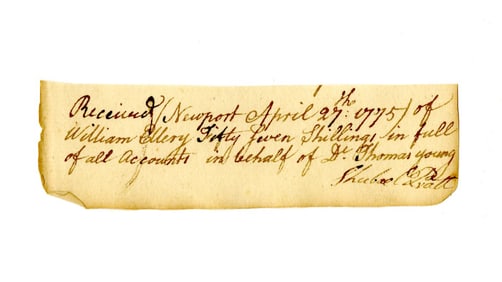 Received (Newport April 27th 1775) of
William Ellery Fifty Seven Shillings in full
of all Accounts in behalf of Dr. Thomas young
Pratt